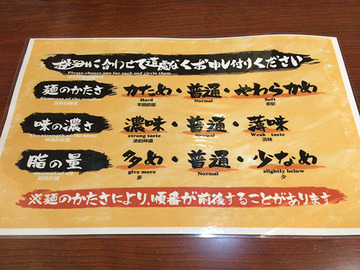 お好みに合わせて遠慮なくお申し付けください
Please choose one for each and circle them
麺のかたさ
かため・普通・やわらかめ
Hard Normal Soft
味の濃さ
濃味・普通・薄味
strong taste Normal Weak taste
脂の量
多め・普通・少なめ
give more Normal slightly below
多 少
※麺のかたさにより、順番が前後することがあります